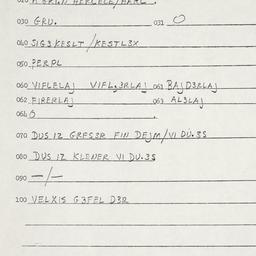 030 GRU. 031 O
040 SIG3KESLT /KESTL3X
050 PERPL
060 VIFLELAJ VIFL,3RLAJ 061 BAJD3RLAJ
062 FIRERLAJ 063 AL3LAJ
064 O
070 DUS IZ GRES3R FIN DEJM/VI DU.3S
080 DUS IZ KLENER VI DU.3S
090 —/—
100 VELXIS G3FEL D3R